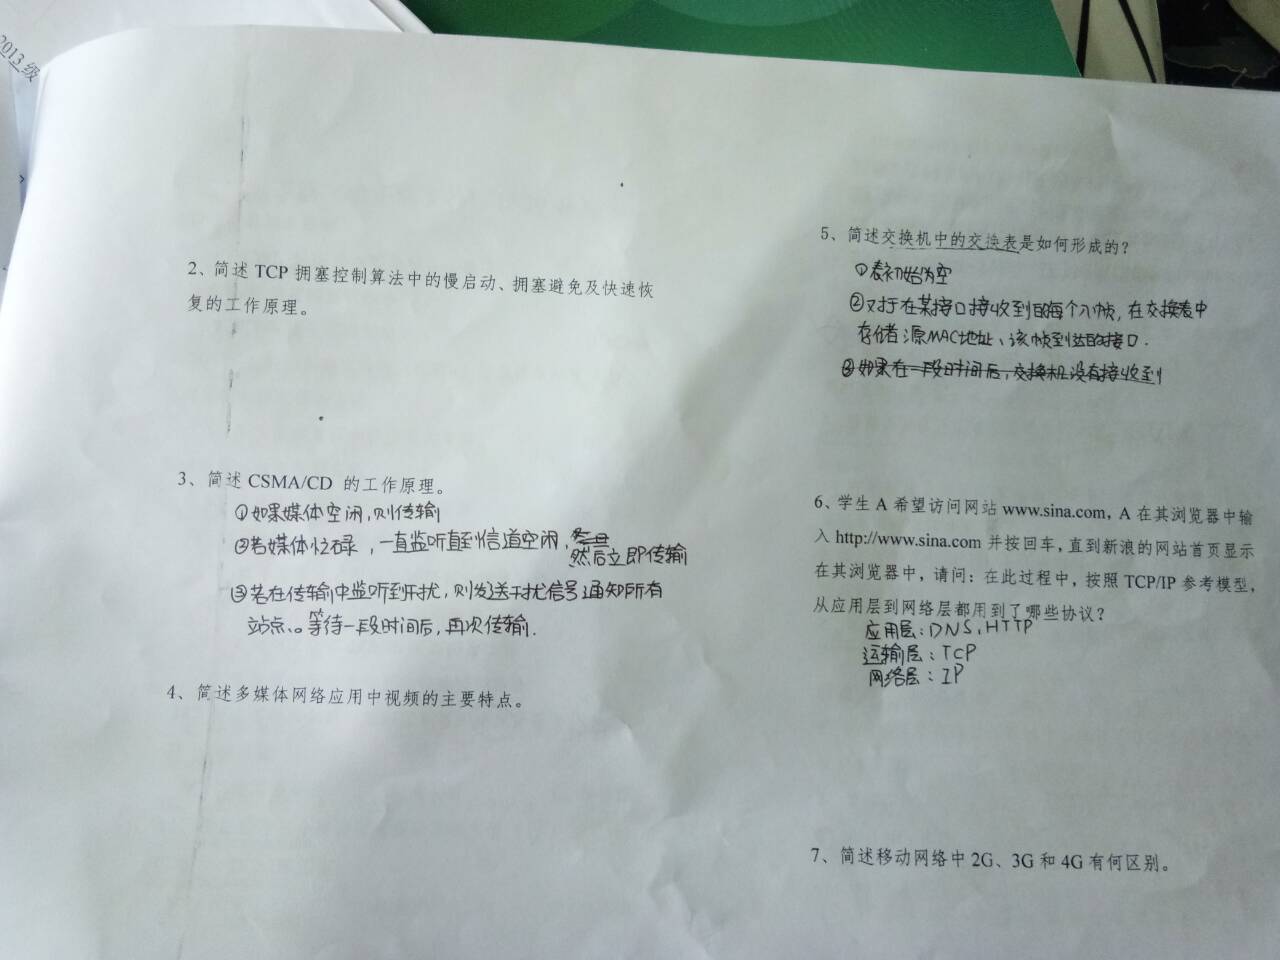 2013级
2、简述 TCP 拥塞控制算法中的慢启动、拥塞避免及快速恢
复的工作原理。
3、简述 CSMA/CD 的工作原理。
①如果媒体空闲,则传输
②若媒体忙碌,一直监听直到信道空闲,
然后立即传输
③若在传输中监听到干扰,则发送干扰信号通知所有
站点、。等待一段时间后,再次传输.
4、简述多媒体网络应用中视频的主要特点。
5、简述交换机中的交换表是如何形成的?
①表初始为空
②对于在某接口接收到的每个入帧,在交换表中
存储源MAC地址、该帧到达的接口.
③如果在一段时间后,交换机没有接收到
6、学生 A 希望访问网站 www.sina.com,A 在其浏览器中输
入 http://www.sina.com 并按回车,直到新浪的网站首页显示
在其浏览器中,请问:在此过程中,按照 TCP/IP 参考模型,
从应用层到网络层都用到了哪些协议?
应用层:DNS、HTTP
运输层:TCP
网络层:IP
7、简述移动网络中 2G、3G 和 4G 有何区别。